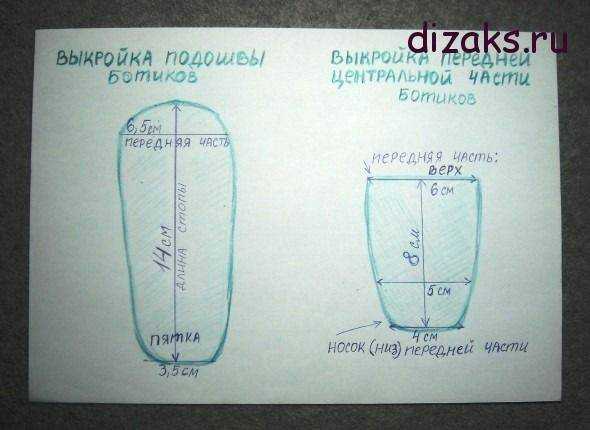 dizaks.ru
ВЫКРОЙКА ПОДОШВЫ
БОТИКОВ
6,5см
ПЕРЕДНЯЯ ЧАСТЬ
14 СМ
ДЛИНА СТОПЫ
ПЯТКА
3,5 СМ
ВЫКРОЙКА ПЕРЕДНЕЙ
ЦЕНТРАЛЬНОЙ ЧАСТИ
БОТИКОВ
ПЕРЕДНЯЯ ЧАСТЬ:
ВЕРХ
6 СМ
8 СМ
5 СМ
4 СМ
НОСОК (НИЗ) ПЕРЕДНЕЙ ЧАСТИ